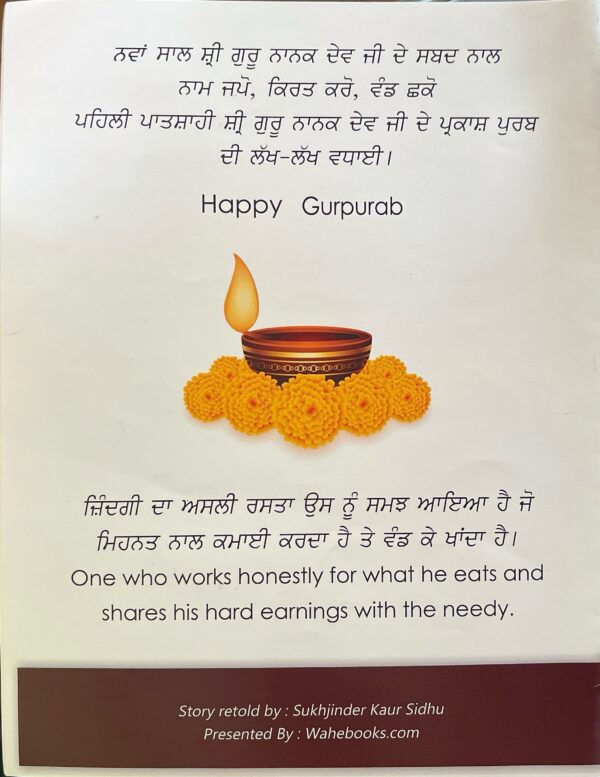 ਨਵਾਂ ਸਾਲ ਸ਼੍ਰੀ ਗੁਰੂ ਨਾਨਕ ਦੇਵ ਜੀ ਦੇ ਸਬਦ ਨਾਲ
ਨਾਮ ਜਪੋ, ਕਿਰਤ ਕਰੋ, ਵੰਡ ਛਕੋ
ਪਹਿਲੀ ਪਾਤਸ਼ਾਹੀ ਸ਼੍ਰੀ ਗੁਰੂ ਨਾਨਕ ਦੇਵ ਜੀ ਦੇ ਪ੍ਰਕਾਸ਼ ਪੁਰਬ
ਦੀ ਲੱਖ-ਲੱਖ ਵਧਾਈ।
Happy Gurpurab
ਜ਼ਿੰਦਗੀ ਦਾ ਅਸਲੀ ਰਸਤਾ ਉਸ ਨੂੰ ਸਮਝ ਆਇਆ ਹੈ ਜੋ
ਮਿਹਨਤ ਨਾਲ ਕਮਾਈ ਕਰਦਾ ਹੈ ਤੇ ਵੰਡ ਕੇ ਖਾਂਦਾ ਹੈ।
One who works honestly for what he eats and
shares his hard earnings with the needy.
Story retold by : Sukhjinder Kaur Sidhu
Presented By : Wahebooks.com